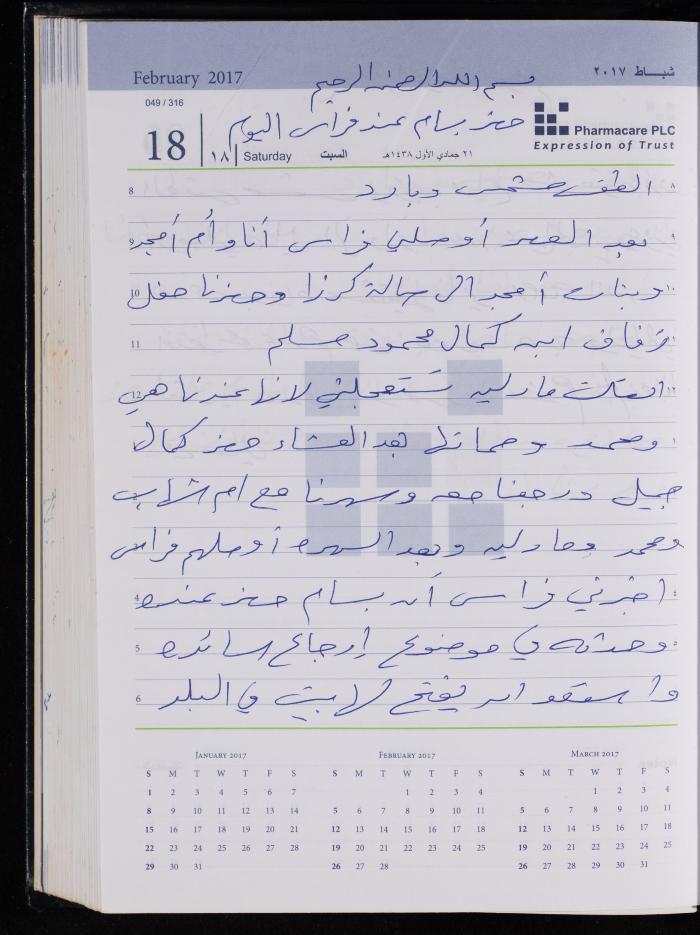 February 2017
شباط ٢٠١٧
بسم الله الرحمن الرحيم
049 / 316
حضر بسام عند فراس اليوم
Pharmacare PLC
Expression of Trust
18 | ١٨ | Saturday السبت ٢١ جمادي الأول ١٤٣٨هـ
8 الطقس مشمس وبارد ٨
9 بعد العصر أوصلني فراس أنا وأم أمجد ٩
10 وبنات أمجد الى صالة كرزا وحضرنا حفل ١٠
11 زفاف ابن كمال محمود مسلم ١١
12 مادلين تستعجلني لانها عندنا هي ١٢
ومحمد وحماتها بعد العشاء حضر كمال ١
جميل ورجعنا معه وسهرنا مع ام
ومحمد ومادلين وبعد السهرة أوصلهم فراس
4 اخبرني فراس أن بسام حضر عنده ٤
5 وحدثه في موضوع إرجاع ٥
6 يفتح لها بيت في البلد
JANUARY 2017
S M T W T F S
1 2 3 4 5 6 7
8 9 10 11 12 13 14
15 16 17 18 19 20 21
22 23 24 25 26 27 28
29 30 31
FEBRUARY 2017
S M T W T F S
1 2 3 4
5 6 7 8 9 10 11
12 13 14 15 16 17 18
19 20 21 22 23 24 25
26 27 28
MARCH 2017
S M T W T F S
1 2 3 4
5 6 7 8 9 10 11
12 13 14 15 16 17 18
19 20 21 22 23 24 25
26 27 28 29 30 31